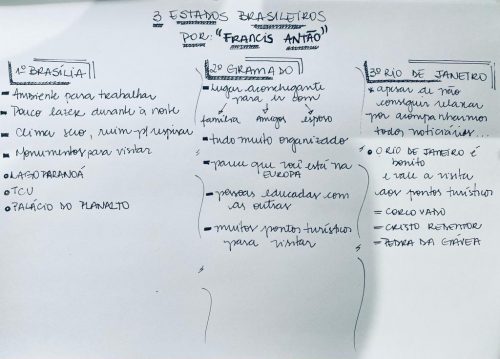 3 ESTADOS BRASILEIROS
POR: "FRANCIS ANTÃO"
1º BRASÍLIA
- Ambiente para trabalhar
- Pouco lazer durante à noite
- Clima seco, ruim p/ respirar
- Monumentos para visitar
o LAGO PARANOÁ
o TCU
o PALÁCIO DO PLANALTO
2º GRAMADO
- lugar aconchegante
para ir com
família amigos esposo
- tudo muito organizado
- parece que você está na
EUROPA
- pessoas educadas com
as outras
- muitos pontos turístico
para visitar
3º RIO DE JANEIRO
* apesar de não
conseguir relaxar
por acompanharmos
todos noticiários...
o O RIO DE JANEIRO é
bonito
e vale a visita
aos pontos turístico
= CORCOVADO
= CRISTO REDENTOR
= PEDRA DA GÁVEA